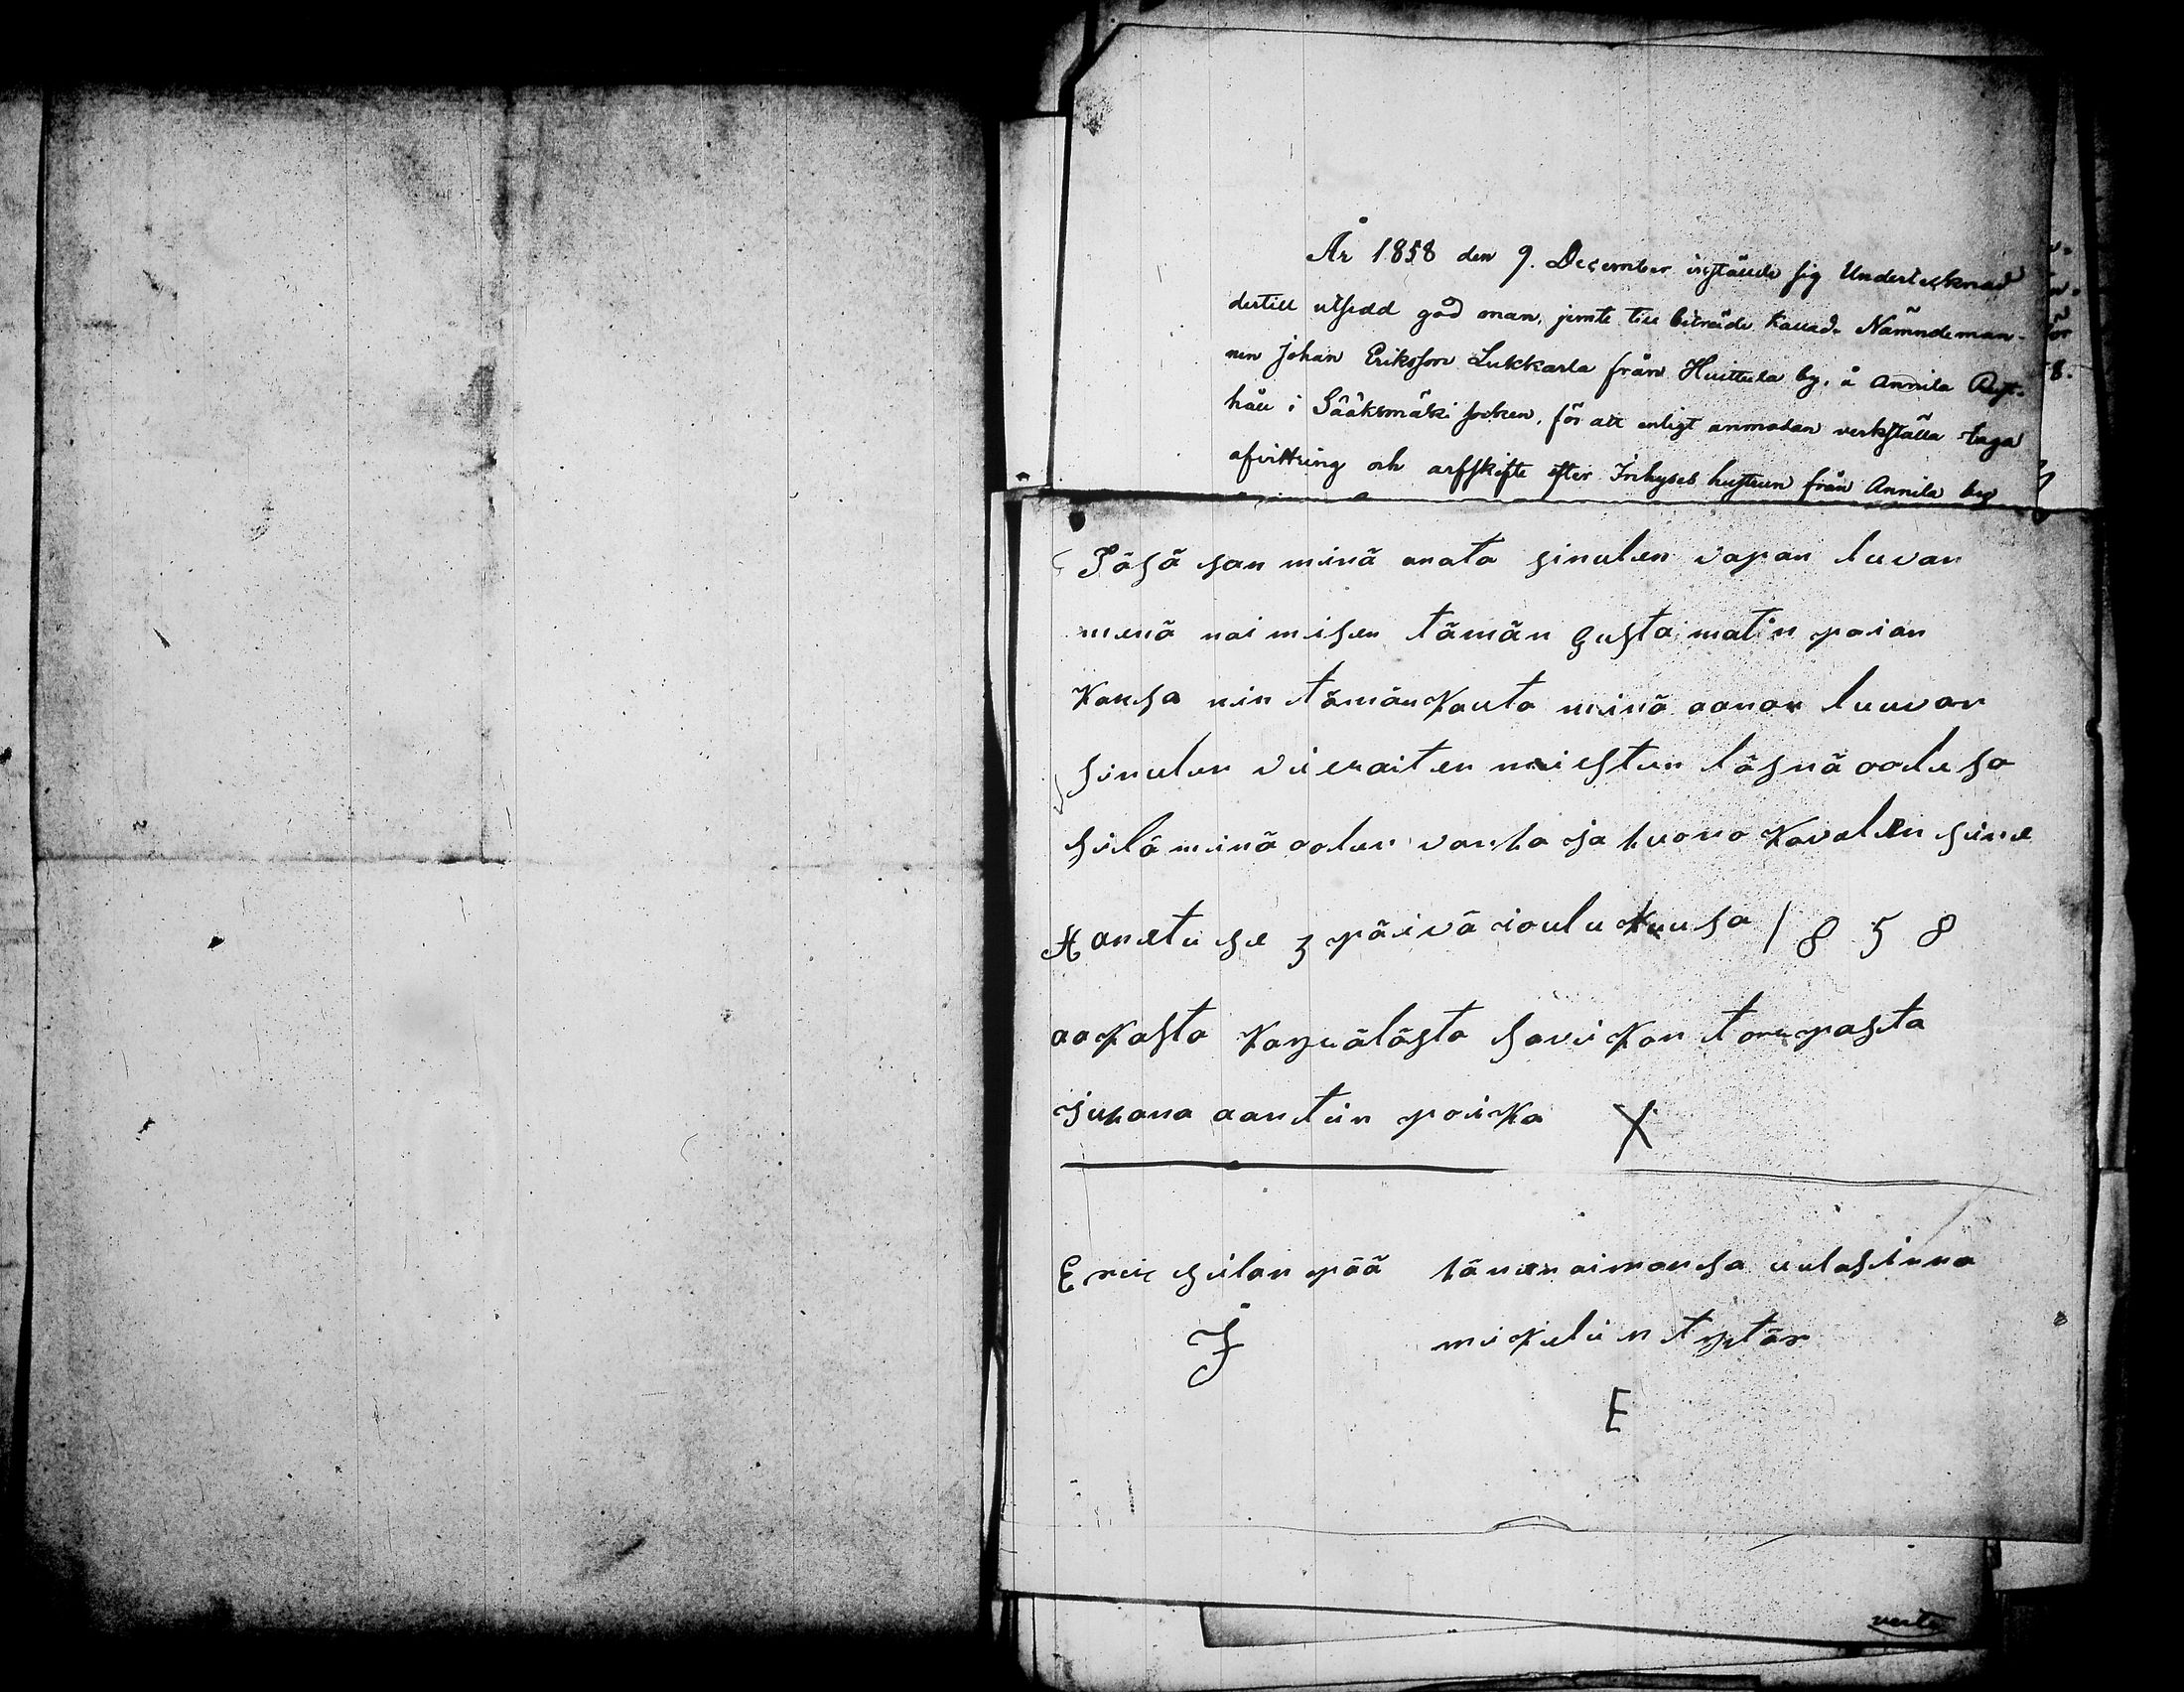 År 1858 den 9. December instälde sig Undertecknad
dertill utsedd god man, jemte till biträde kallade Nämndeman-
nen Johan Eriksson Lukkarla från Huittula by, å Annila Rust-
håll i Sääksmäki socken, för att enligt anmodan verkställa laga
afvittring och arfskifte efter Inhyses hustrun från Annila by
Täsä san minä anata sinulen vapan luvan
menä naimisen tämän gusta matin poian
Kansa nin tämän Kauta minä aanan luuvan
sinulen vieraiten miesten läsnä oolesa
silä minä oolen vanha ja huono Kavelen sine
Hanetuse 3 päivä ioulu Kuusa 1858
aaKasta Kanyälästa saviKon torpasta
Juhana aantiin poiKa X
Eric siilan pää hänen aimonsa uulastinna
J miKeliin tytär
E
verte